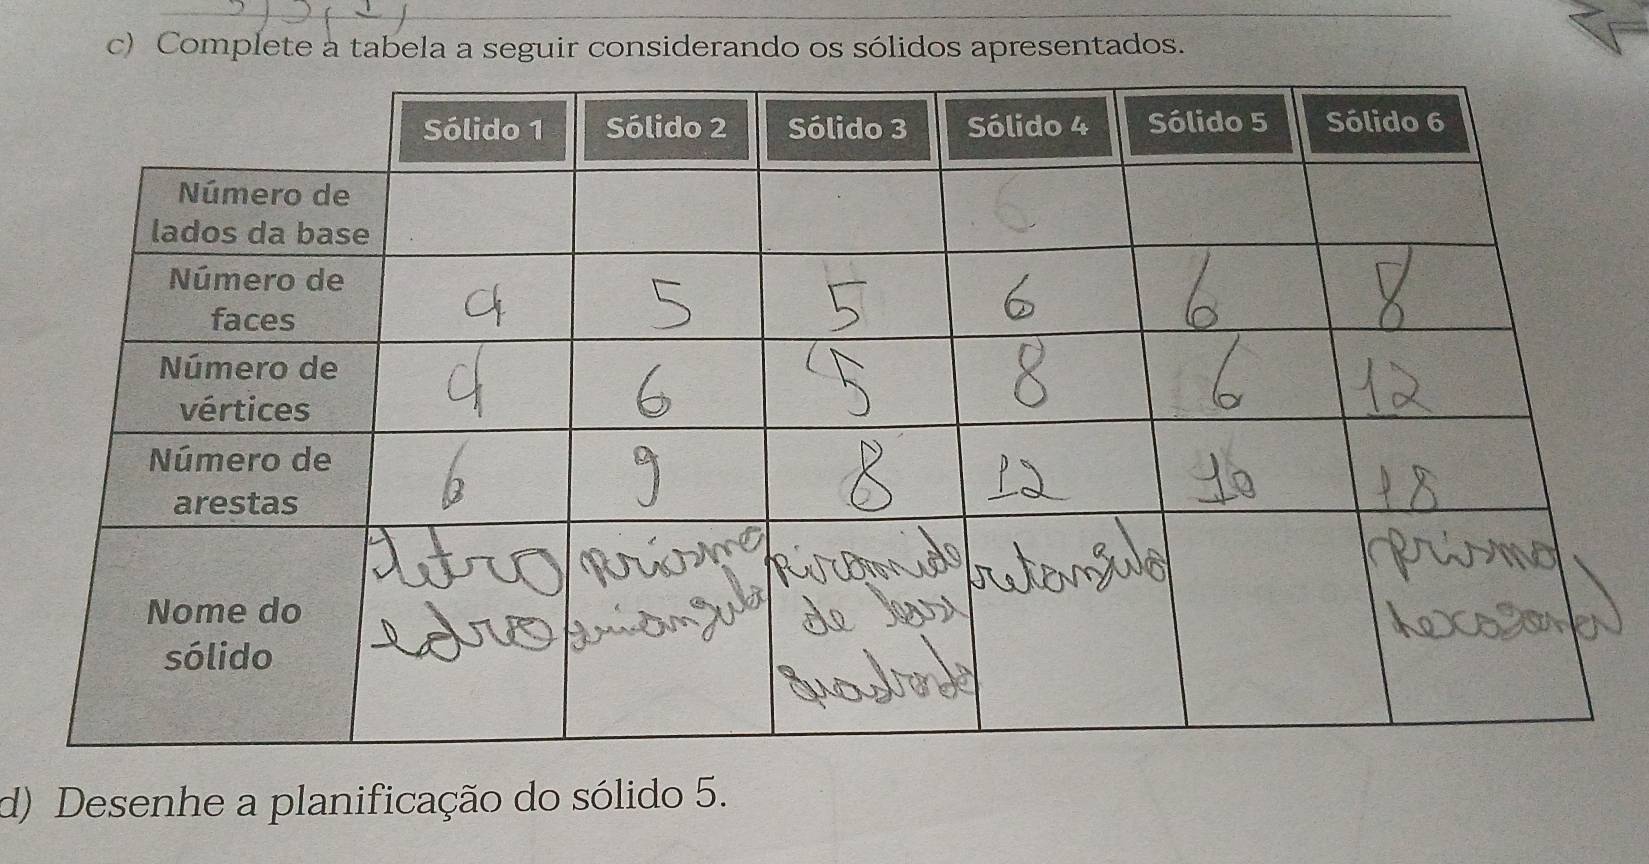 c) Complete a tabela a seguir considerando os sólidos apresentados.
Sólido 1 Sólido 2 Sólido 3 Sólido 4 Sólido 5 Sólido 6
Número de
lados da base
Número de
faces
4 5 5 6 6 8
Número de
vértices
4 6 5 8 6 12
Número de
arestas
6 9 8 12 10 18
Nome do
sólido
tetro
edro
prisma
triangula
piramide
de base
quadrada
retangulo
prisma
hexagonal
d) Desenhe a planificação do sólido 5.